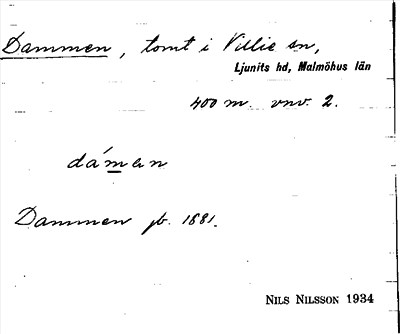 Dammen, tomt i Villie sn,
Ljunits hd, Malmöhus län
400 m. vnv. 2.
dám̲en
Dammen jb. 1881.
NILS NILSSON 1934